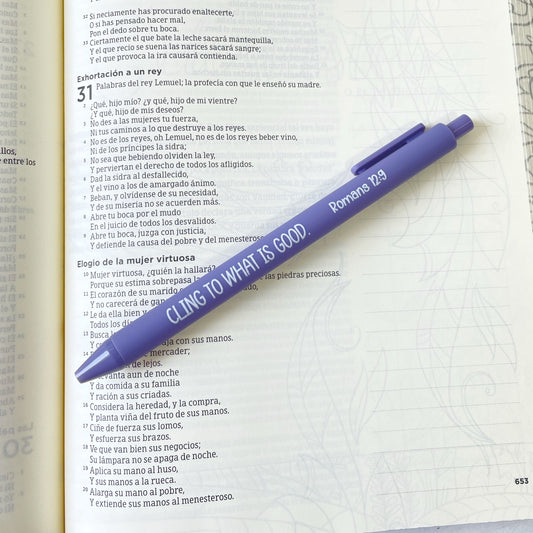 32 Si neciamente has procurado enaltecerte,
O si has pensado hacer mal,
Pon el dedo sobre tu boca.
33 Ciertamente el que bate la leche sacará mantequilla,
Y el que recio se suena las narices sacará sangre;
Y el que provoca la ira causará contienda.
Exhortación a un rey
31 Palabras del rey Lemuel; la profecía con que le enseñó su madre.
2 ¿Qué, hijo mío? ¿y qué, hijo de mi vientre?
¿Y qué, hijo de mis deseos?
3 No des a las mujeres tu fuerza,
Ni tus caminos a lo que destruye a los reyes.
4 No es de los reyes, oh Lemuel, no es de los reyes beber vino,
Ni de los príncipes la sidra;
5 No sea que bebiendo olviden la ley,
Y perviertan el derecho de todos los afligidos.
6 Dad la sidra al desfallecido,
Y el vino a los de amargado ánimo.
7 Beban, y olvídense de su necesidad,
Y de su miseria no se acuerden más.
8 Abre tu boca por el mudo
En el juicio de todos los desvalidos.
9 Abre tu boca, juzga con justicia,
Y defiende la causa del pobre y del menesteroso.
Elogio de la mujer virtuosa
10 Mujer virtuosa, ¿quién la hallará?
Porque su estima sobrepasa la de las piedras preciosas.
11 El corazón de su marido
Y no carecerá de
12 Le da ella bien y
Todos los
13 Busca
Y con sus manos.
14 mercader;
de lejos.
levanta aun de noche
Y da comida a su familia
Y ración a sus criadas.
16 Considera la heredad, y la compra,
Y planta viña del fruto de sus manos.
17 Ciñe de fuerza sus lomos,
Y esfuerza sus brazos.
18 Ve que van bien sus negocios;
Su lámpara no se apaga de noche.
19 Aplica su mano al huso,
Y sus manos a la rueca.
20 Alarga su mano al pobre,
Y extiende sus manos al menesteroso.
653
CLING TO WHAT IS GOOD.
Romans 12:9
y entre los